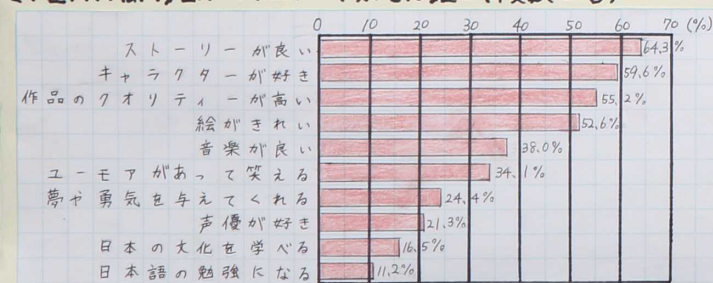 0 10 20 30 40 50 60 70 (%)
ストーリーが良い 64.3%
キャラクターが好き 59.6%
作品のクオリティーが高い 55.2%
絵がきれい 52.6%
音楽が良い 38.0%
ユーモアがあって笑える 34.1%
夢や勇気を与えてくれる 24.4%
声優が好き 21.3%
日本の文化を学べる 16.5%
日本語の勉強になる 11.2%